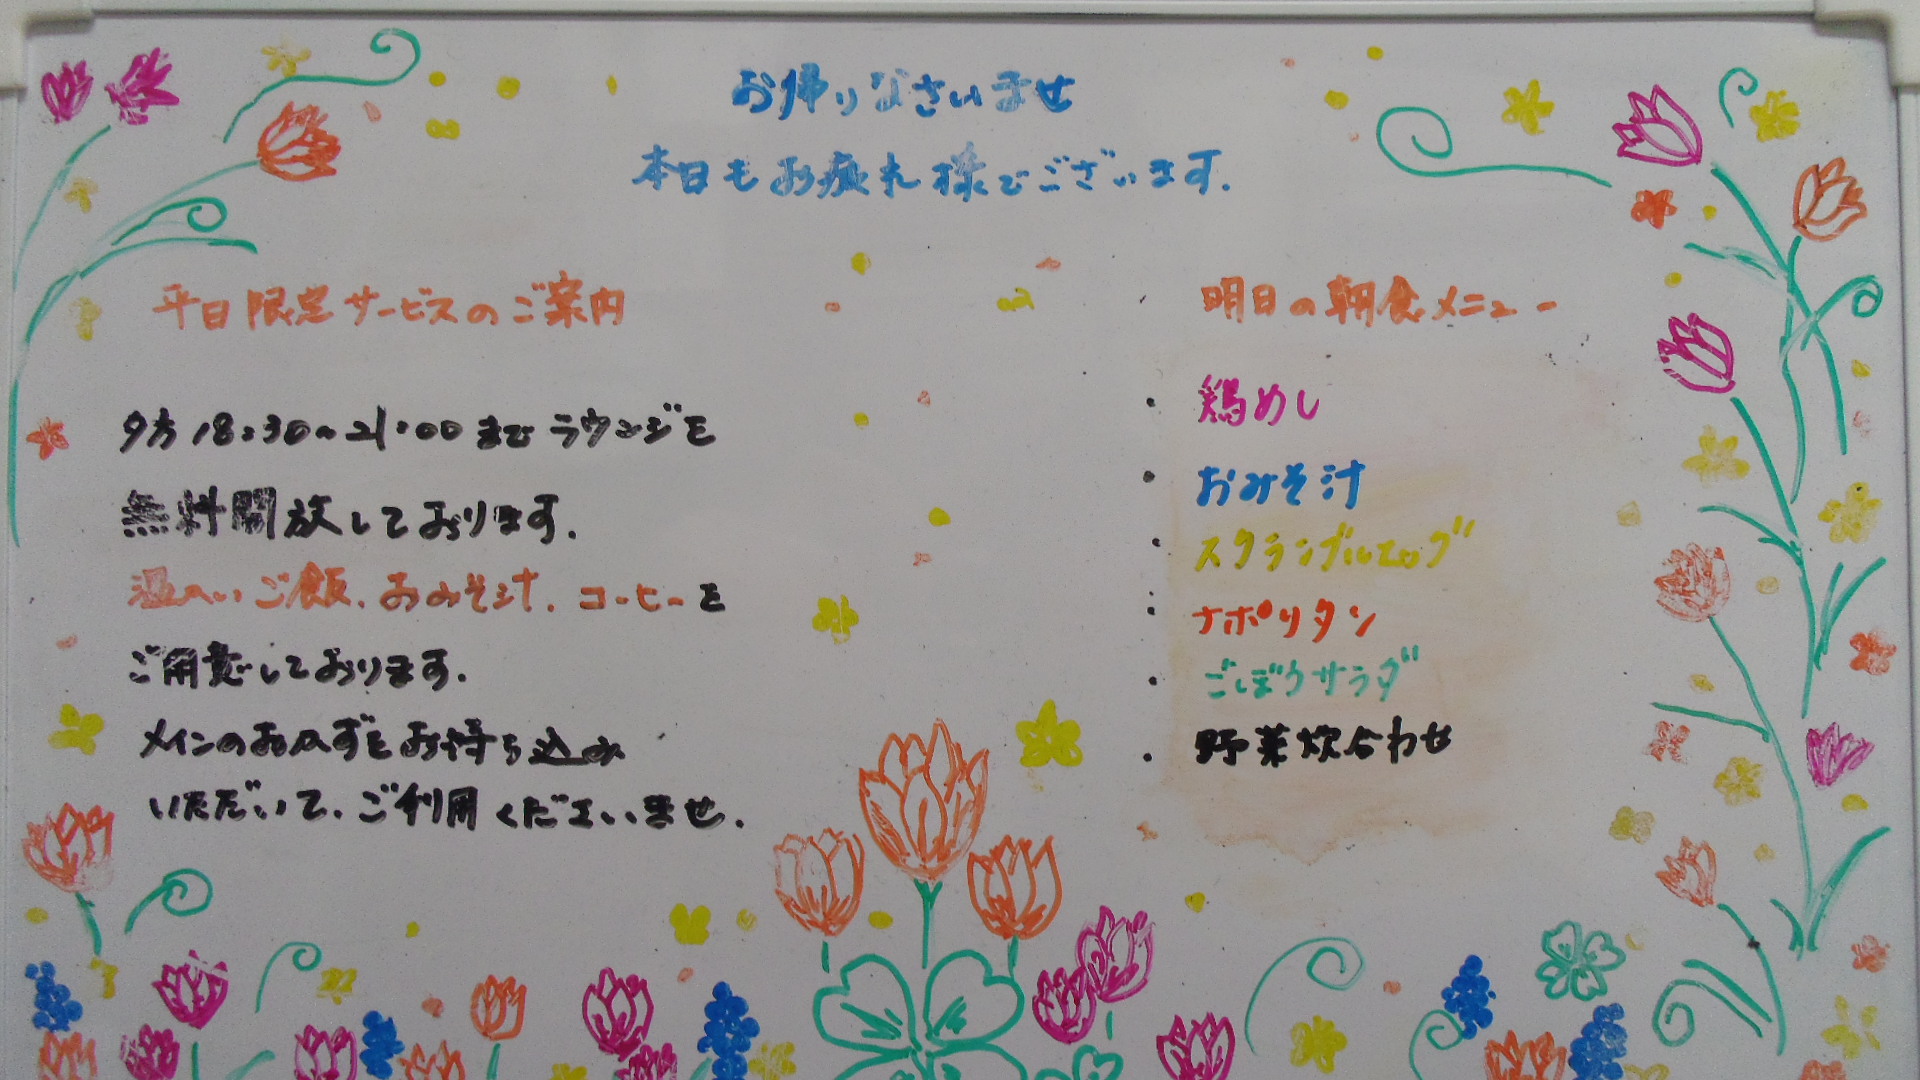 お帰りなさいませ
本日もお疲れ様でございます.
平日限定サービスのご案内
夕方18:30~21:00までラウンジを
無料開放しております.
温かいご飯.おみそ汁.コーヒーを
ご用意しております.
メインのおかずをお持ち込み
いただいて.ご利用くださいませ.
明日の朝食メニュー
・鶏めし
・おみそ汁
・スクランブルエッグ
・ナポリタン
・ごぼうサラダ
・野菜炊合わせ